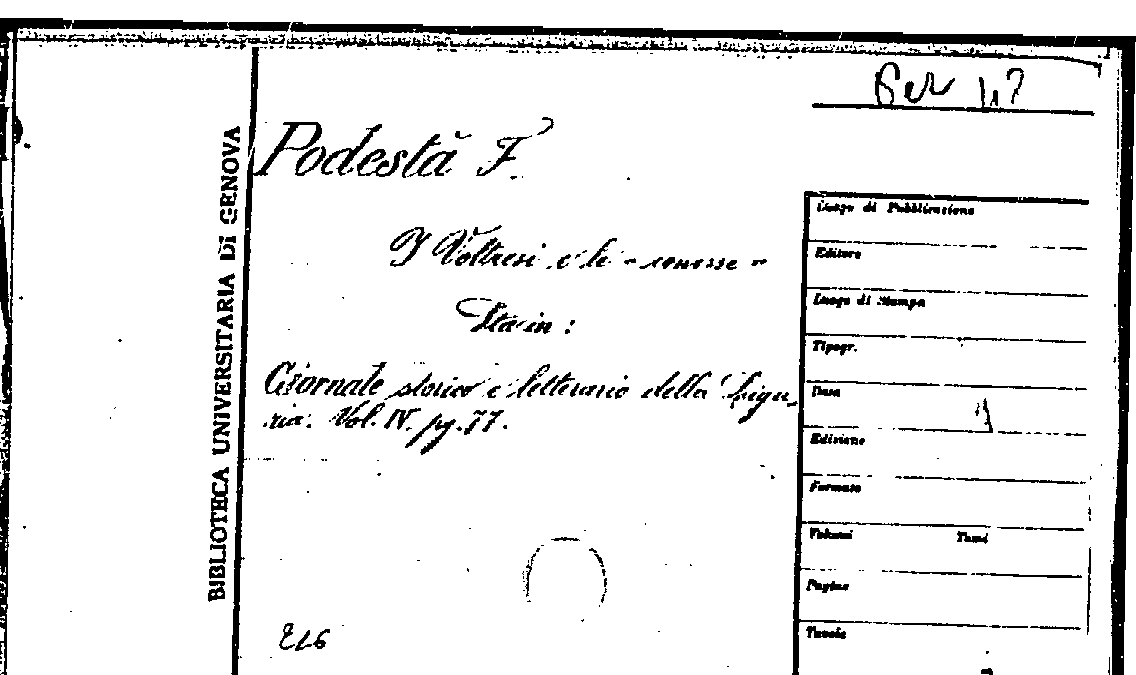 BIBLIOTECA UNIVERSITARIA DI GENOVA
Podestà F.
I Voltresi e le "
Sta in :
Giornale storico e letterario della Ligu-
ria. Vol. IV. pg. 77.
Luogo di Pubblicazione
Editore
Luogo di Stampa
Tipogr.
Data
Edizione
Formato
Volumi Tomi
Pagine
Tavole